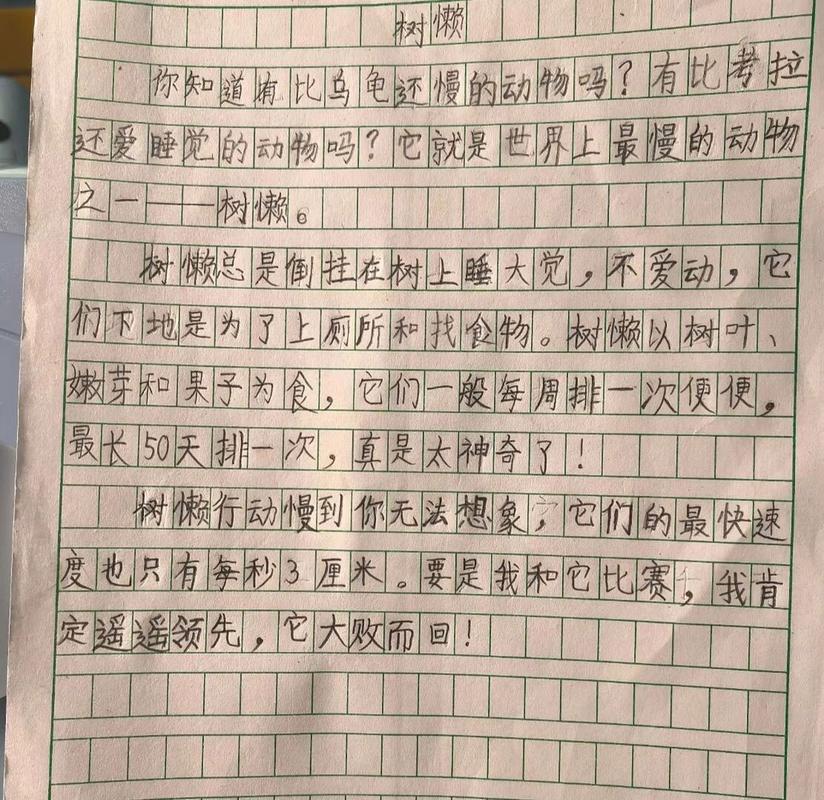 树懒
你知道有比乌龟还慢的动物吗？有比考拉
还爱睡觉的动物吗？它就是世界上最慢的动物
之一——树懒。
树懒总是倒挂在树上睡大觉，不爱动，它
们下地是为了上厕所和找食物。树懒以树叶、
嫩芽和果子为食，它们一般每周排一次便便，
最长50天排一次，真是太神奇了！
树懒行动慢到你无法想象，它们的最快速
度也只有每秒3厘米。要是我和它比赛，我肯
定遥遥领先，它大败而回！